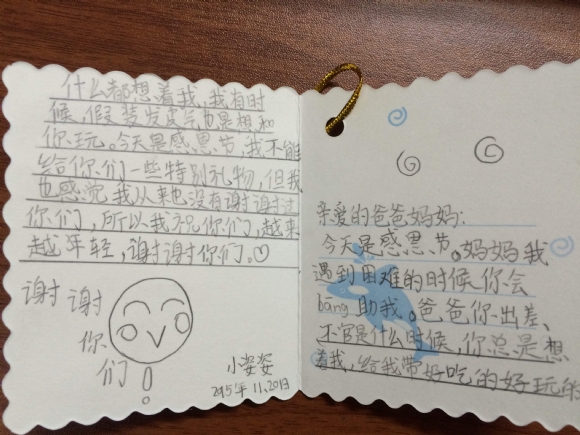 亲爱的爸爸妈妈：
今天是感恩节。妈妈我
遇到困难的时候你会
bāng助我。爸爸你出差、
不管是什么时候，你总是想
着我，给我带好吃的好玩的
什么都想着我，我有时
候，假装发气也是想和
你玩。今天是感恩节，我不能
给你们一些特别礼物，但我
也感觉我从来也没有谢谢过
你们，所以我祝你们，越来
越年轻，谢谢你们。♡
谢谢
你
们！
小姿姿
2015年 11.20日